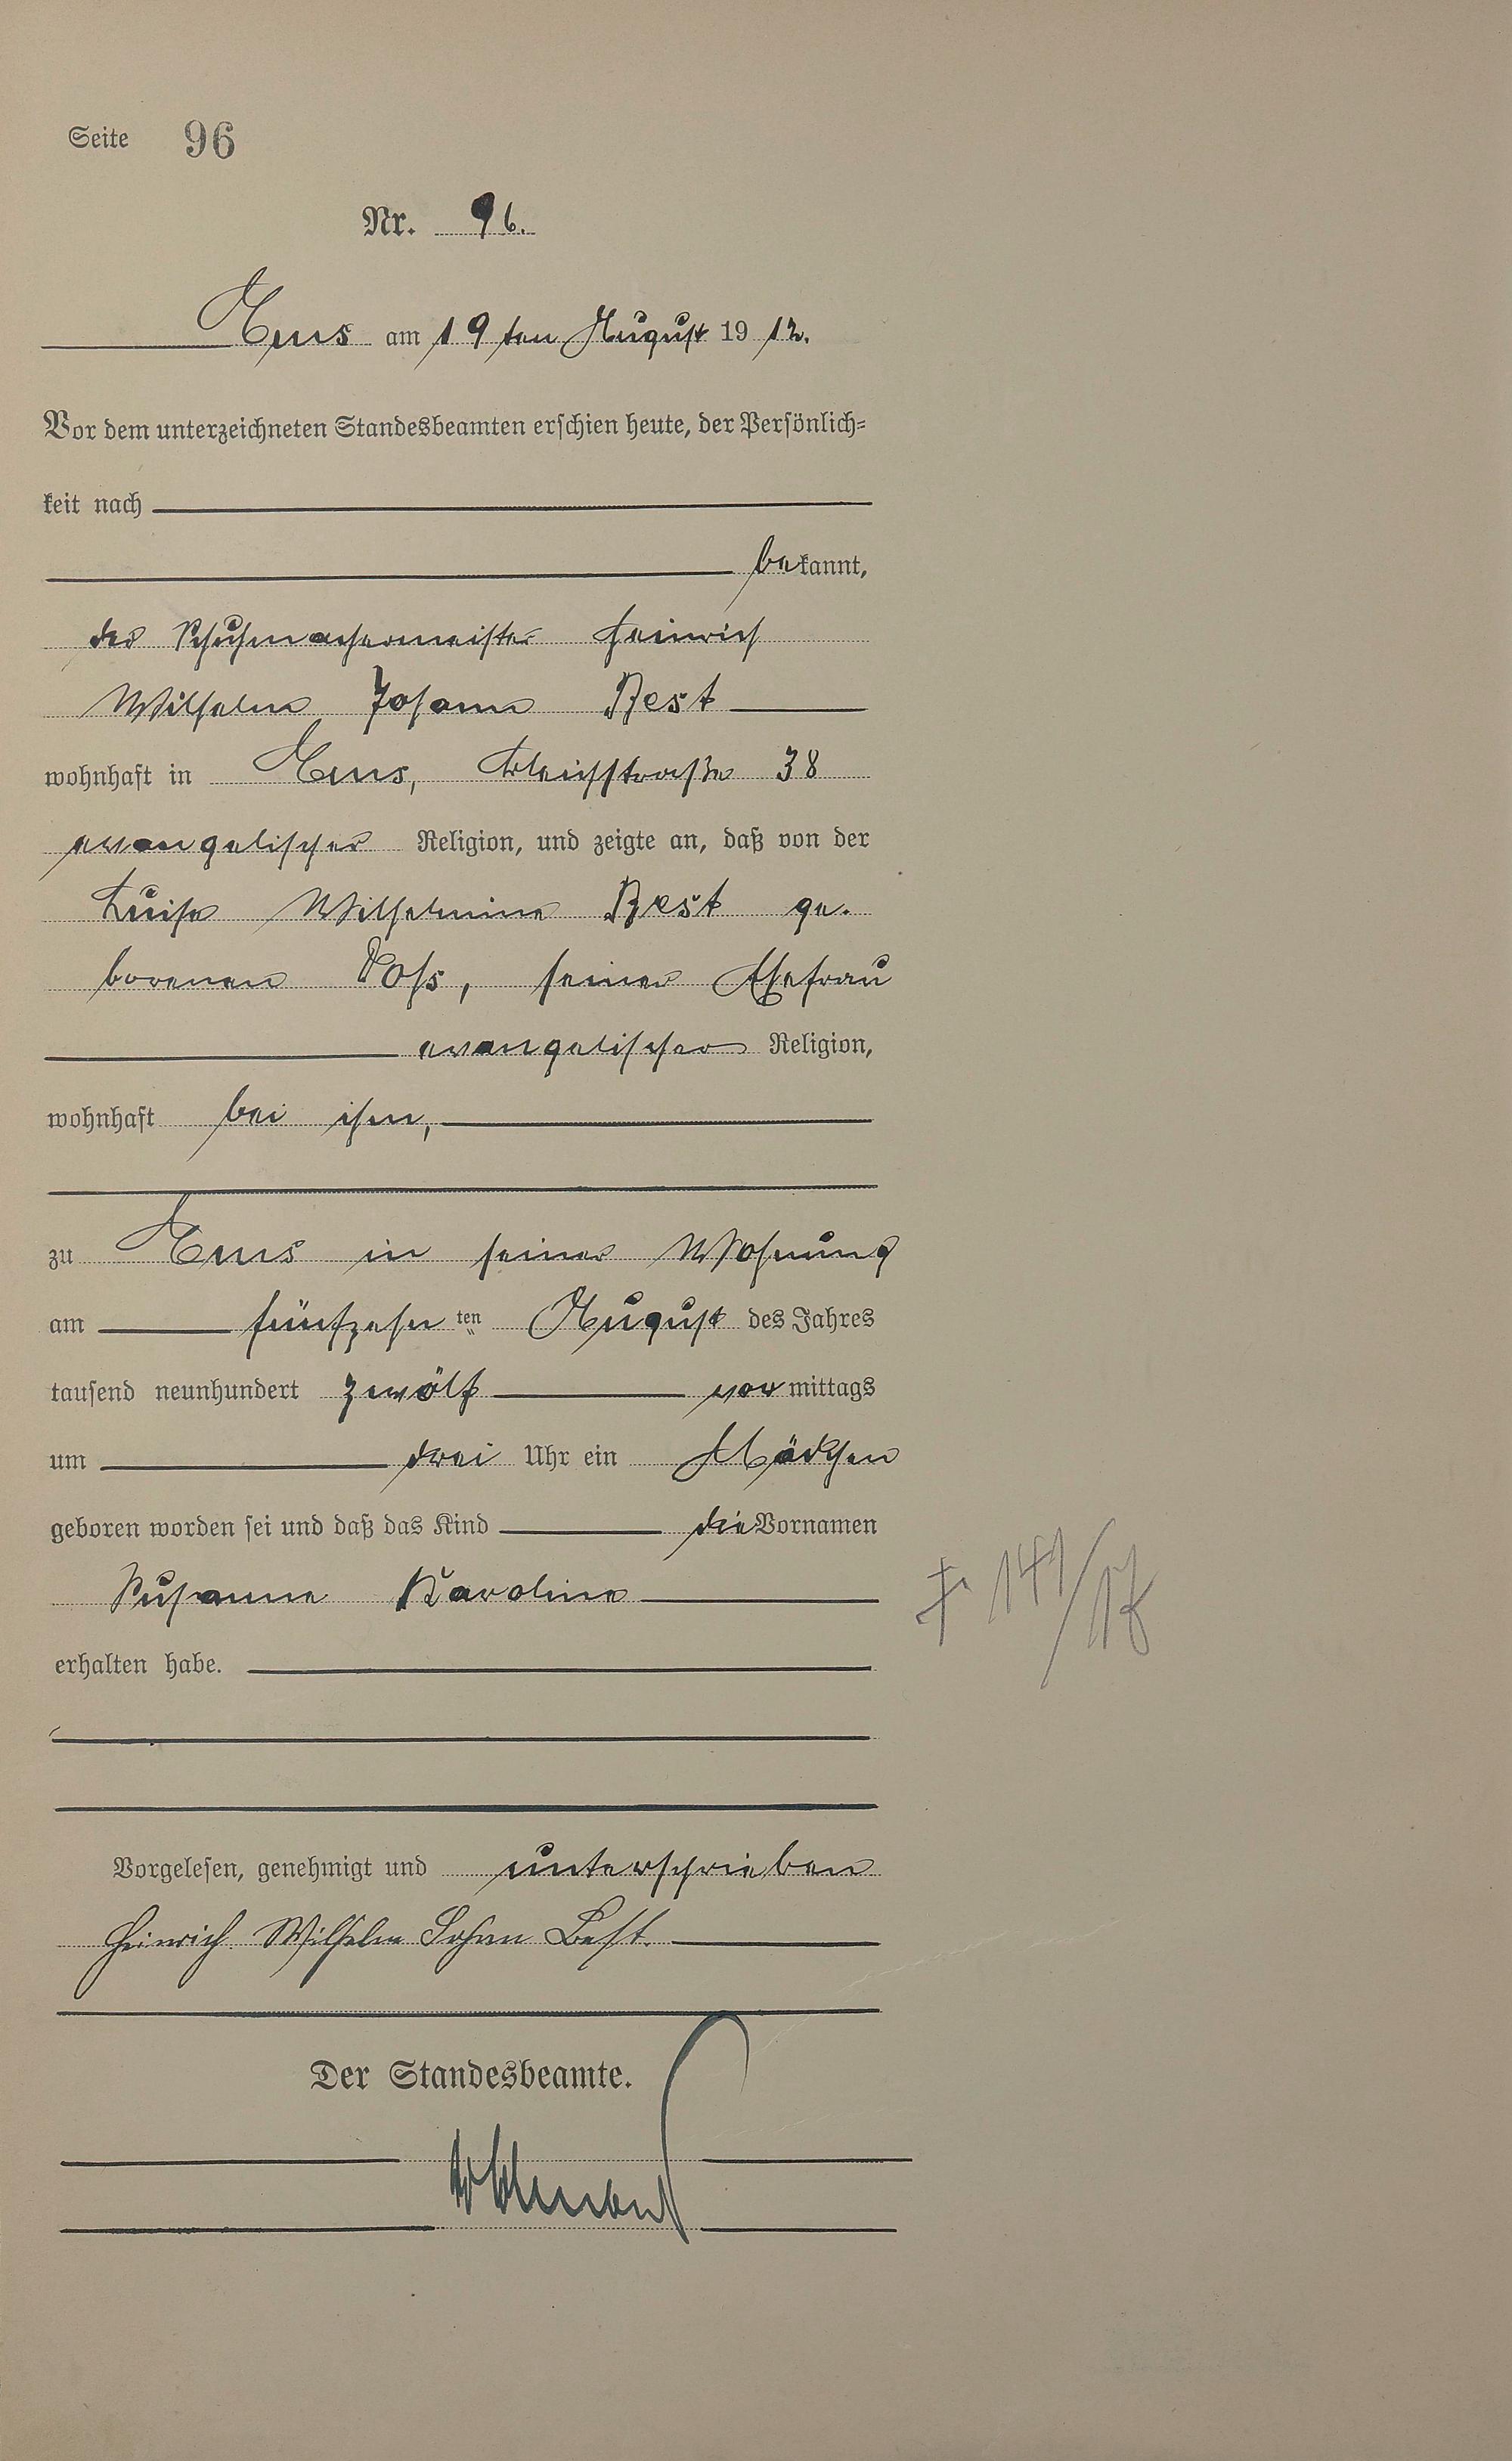 Seite 96
Nr. 96.
Ems am 19ten August 1912.
Vor dem unterzeichneten Standesbeamten erschien heute, der Persönlich=
keit nach
bekannt,
der Schuhmachermeister Heinrich
Wilhelm Johann Best
wohnhaft in Ems, Bleichstraße 38
evangelischer Religion, und zeigte an, daß von der
Luise Wilhelmine Best ge.
borenen Voss, seiner Ehefrau
evangelischer Religion,
wohnhaft bei ihm,
zu Ems in seiner Wohnung
am fünfzehnten August des Jahres
tausend neunhundert zwölf vormittags
um drei Uhr ein Mädchen
geboren worden sei und daß das Kind die Vornamen
Susanne Karoline
† 141/17
erhalten habe.
Vorgelesen, genehmigt und unterschrieben
Heinrich Wilhelm Johann Best.
Der Standesbeamte.